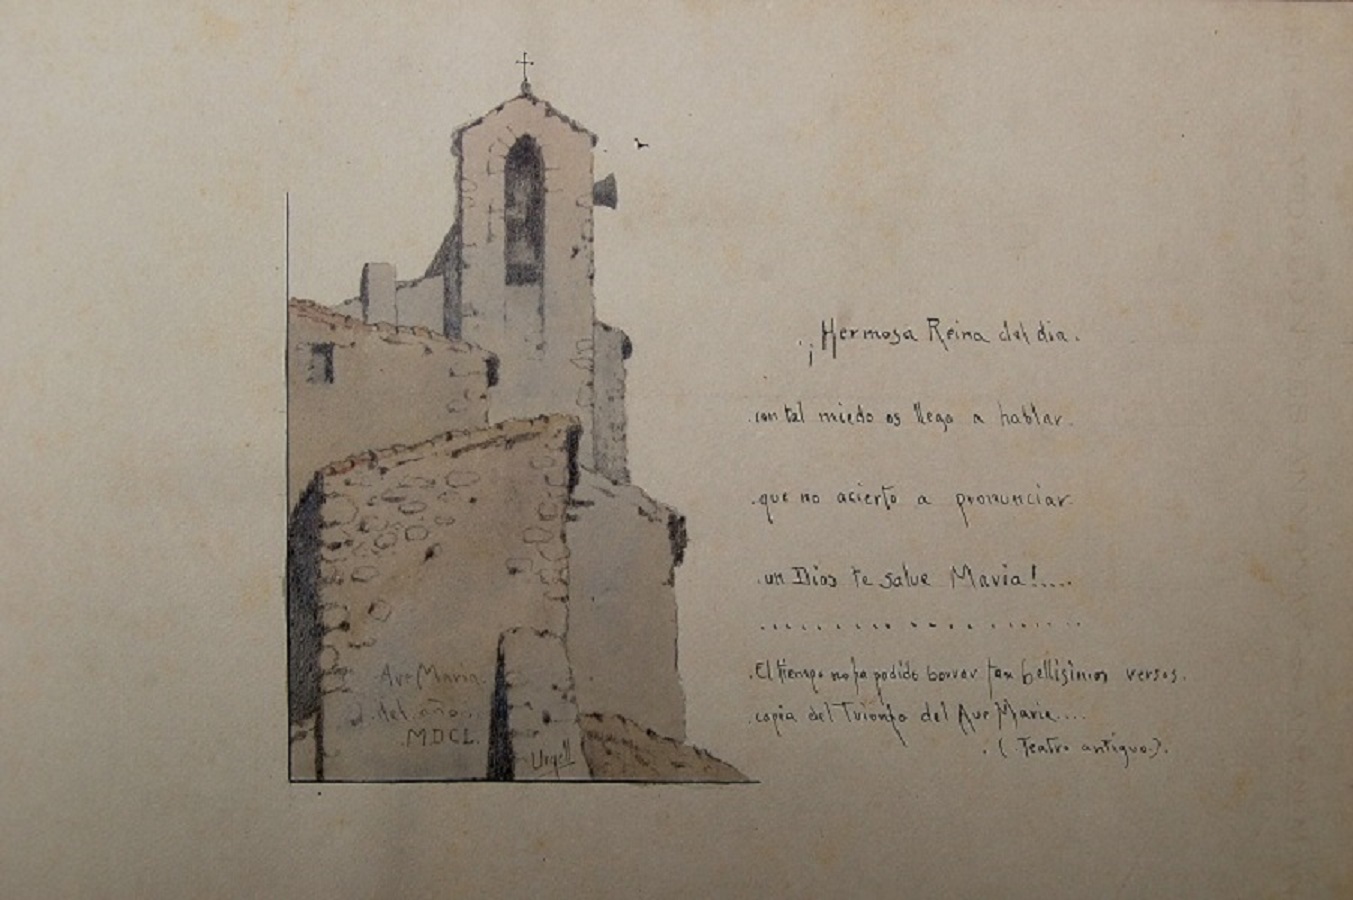 ¡Hermosa Reina del dia.
.con tal miedo os llego a hablar.
.que no acierto a pronunciar.
.un Dios te salve Maria!....
.El tiempo no ha podido borrar tan bellisimos versos.
.copia del Triunfo del Ave Maria....
.(Teatro antiguo.).
Ave Maria.
.del.año..
.M.DCL.
Urgell